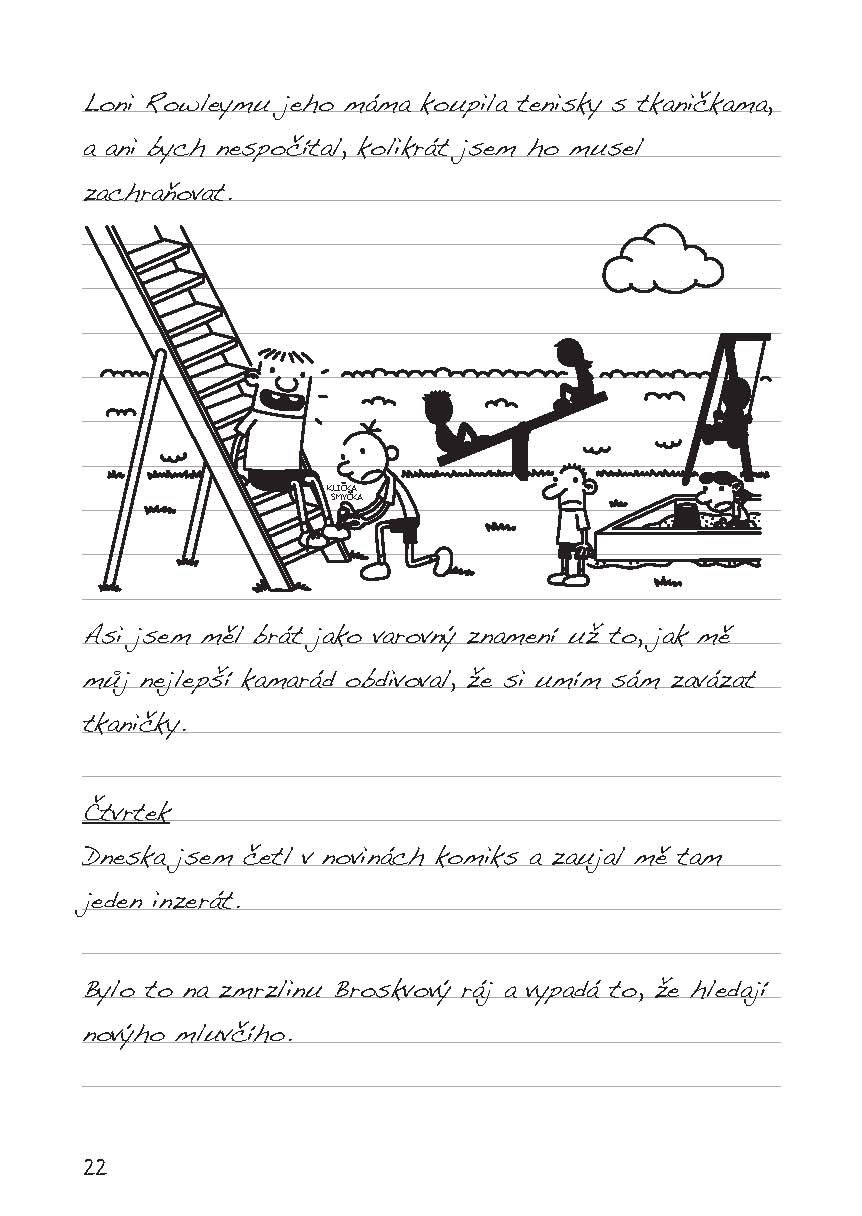 Loni Rowleymu jeho máma koupila tenisky s tkaničkama,
a ani bych nespočítal, kolikrát jsem ho musel
zachraňovat.
KLIČKA
SMYČKA
Asi jsem měl brát jako varovný znamení už to, jak mě
můj nejlepší kamarád obdivoval, že si umím sám zavázat
tkaničky.
Čtvrtek
Dneska jsem četl v novinách komiks a zaujal mě tam
jeden inzerát.
Bylo to na zmrzlinu Broskvový ráj a vypadá to, že hledají
novýho mluvčího.
22